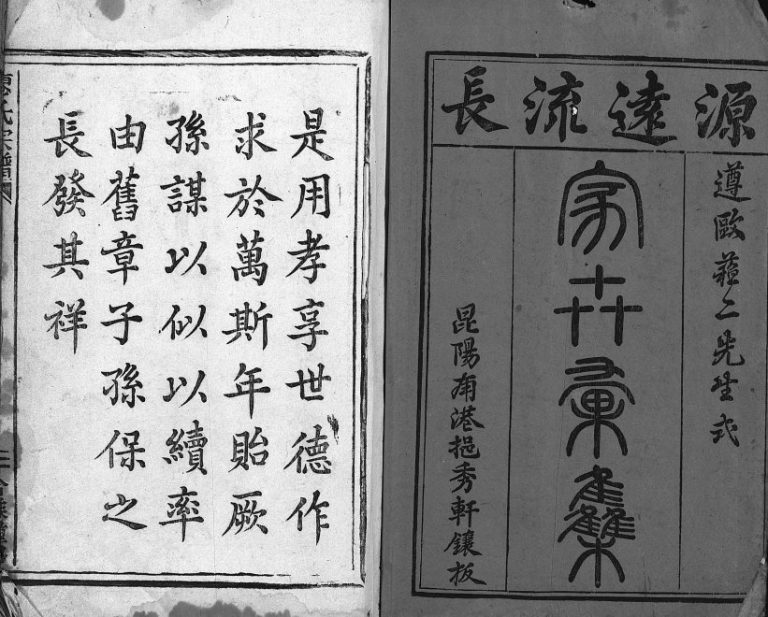 源逺流長
遵歐蘓二先生式
家世彙雧
昆陽南港挹秀軒鑲板
是用孝享世德作
求於萬斯年貽厥
孫謀以似以續率
由舊章子孫保之
長發其祥
氏宗譜